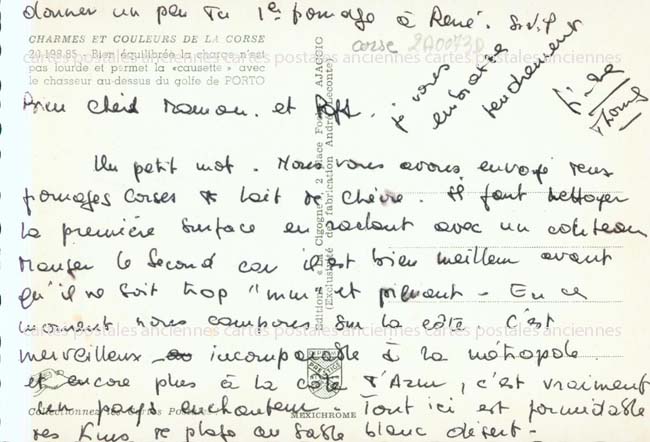 donner un peu du 1e fromage à René. S.V.P
CHARMES ET COULEURS DE LA CORSE
20.198.85 - Bien équilibrée la charge n'est
pas lourde et permet la «causette» avec
le chasseur au-dessus du golfe de PORTO
corse 2A0073D
je vous
embrasse
tendrement
Bien Chers Maman. et
Un petit mot. Nous vous avons envoyé deux
fromages corses lait de chèvre. Il faut nettoyer
la première surface en raclant avec un couteau
Manger le second car il est bien meilleur avant
qu'il ne soit trop "mur" et piquant - En ce
moment nous campons sur la côte C'est
merveilleux incomparable à la métropole.
et encore plus à la côte d'Azur, c'est vraiment
un pays enchanteur. Tout ici est formidable
des Kms de plage au sable blanc désert -
Editions «La Cigogne», 2 place Foch, AJACCIO
(Exclusivité de fabrication André Leconte)
Collectionnez les Cartes Postales
MEXICHROME
cartes postales anciennes cartes postales anciennes cartes postales anciennes
cartes postales anciennes cartes postales anciennes cartes postales anciennes